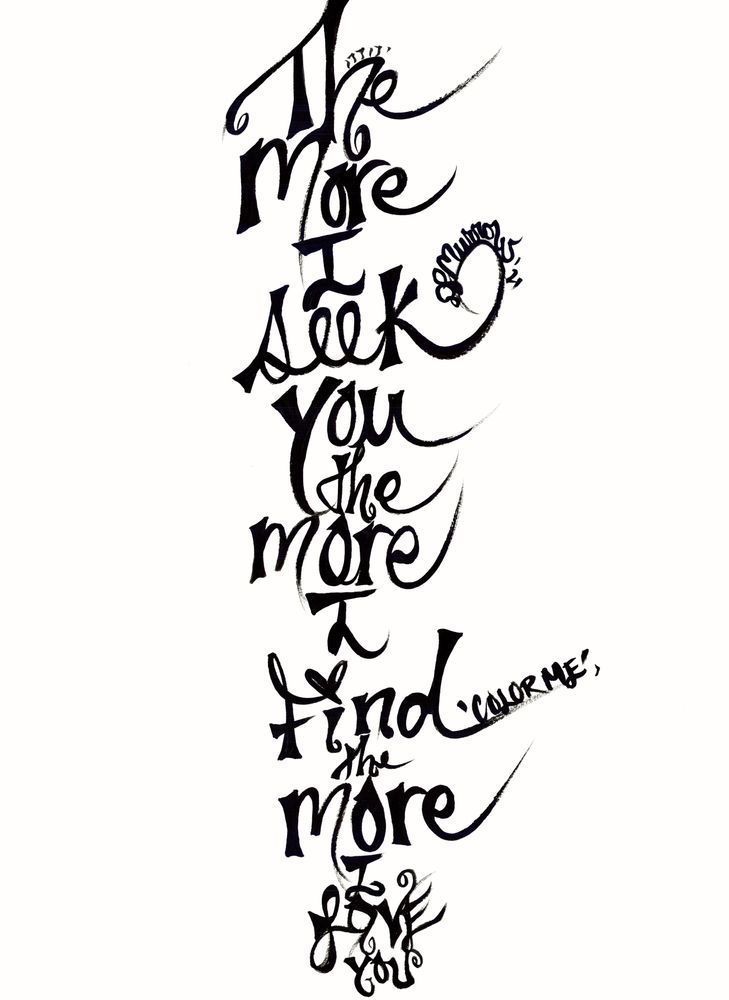 The
more
I
seek
you
the
more
I
find
'COLOR ME',
the
more
I
LOVE
YOU